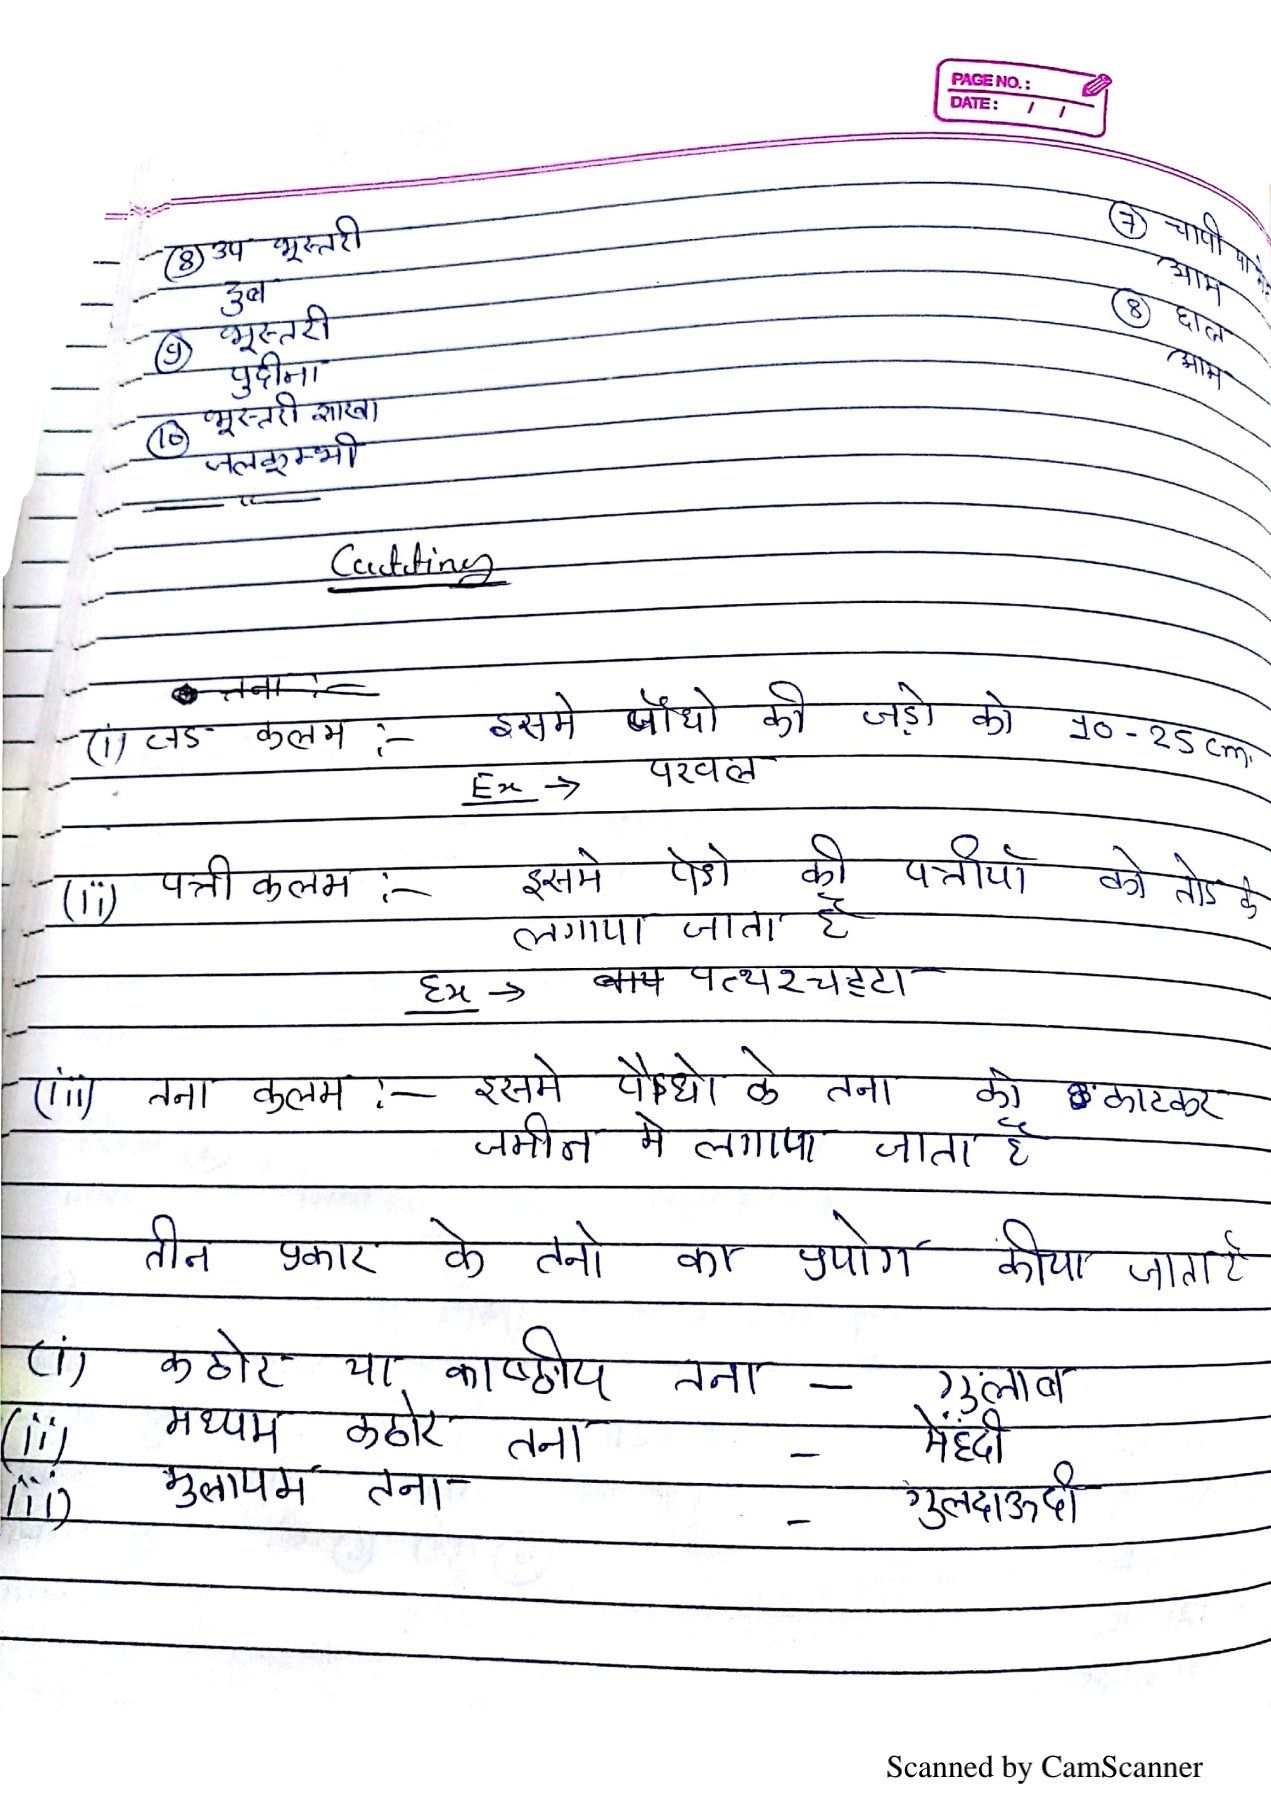 PAGE NO.:
DATE: / /
(8) उप भूस्तरी
दुब
(9) भूस्तरी
पुदीना
(10) भूस्तरी शाखा
जलकुम्भी
(7) चापी या
आम
(8) छाल
आम
Cutting
तना :-
(i) जड कलम :- इसमे पौधो की जड़ो को 10-25 cm.
Ex → परवल
(ii) पत्ती कलम :- इसमे पेडो की पत्तीयों को तोड के
लगाया जाता है
Ex → पत्थरचट्टा
(iii) तना कलम :- इसमे पौधो के तना को काटकर
जमीन मे लगाया जाता है
तीन प्रकार के तनो का प्रयोग कीया जाता है
(i) कठोर या काष्ठीय तना - गुलाब
(ii) मध्यम कठोर तना - मेंहंदी
(iii) मुलायम तना - गुलदाऊदी
Scanned by CamScanner